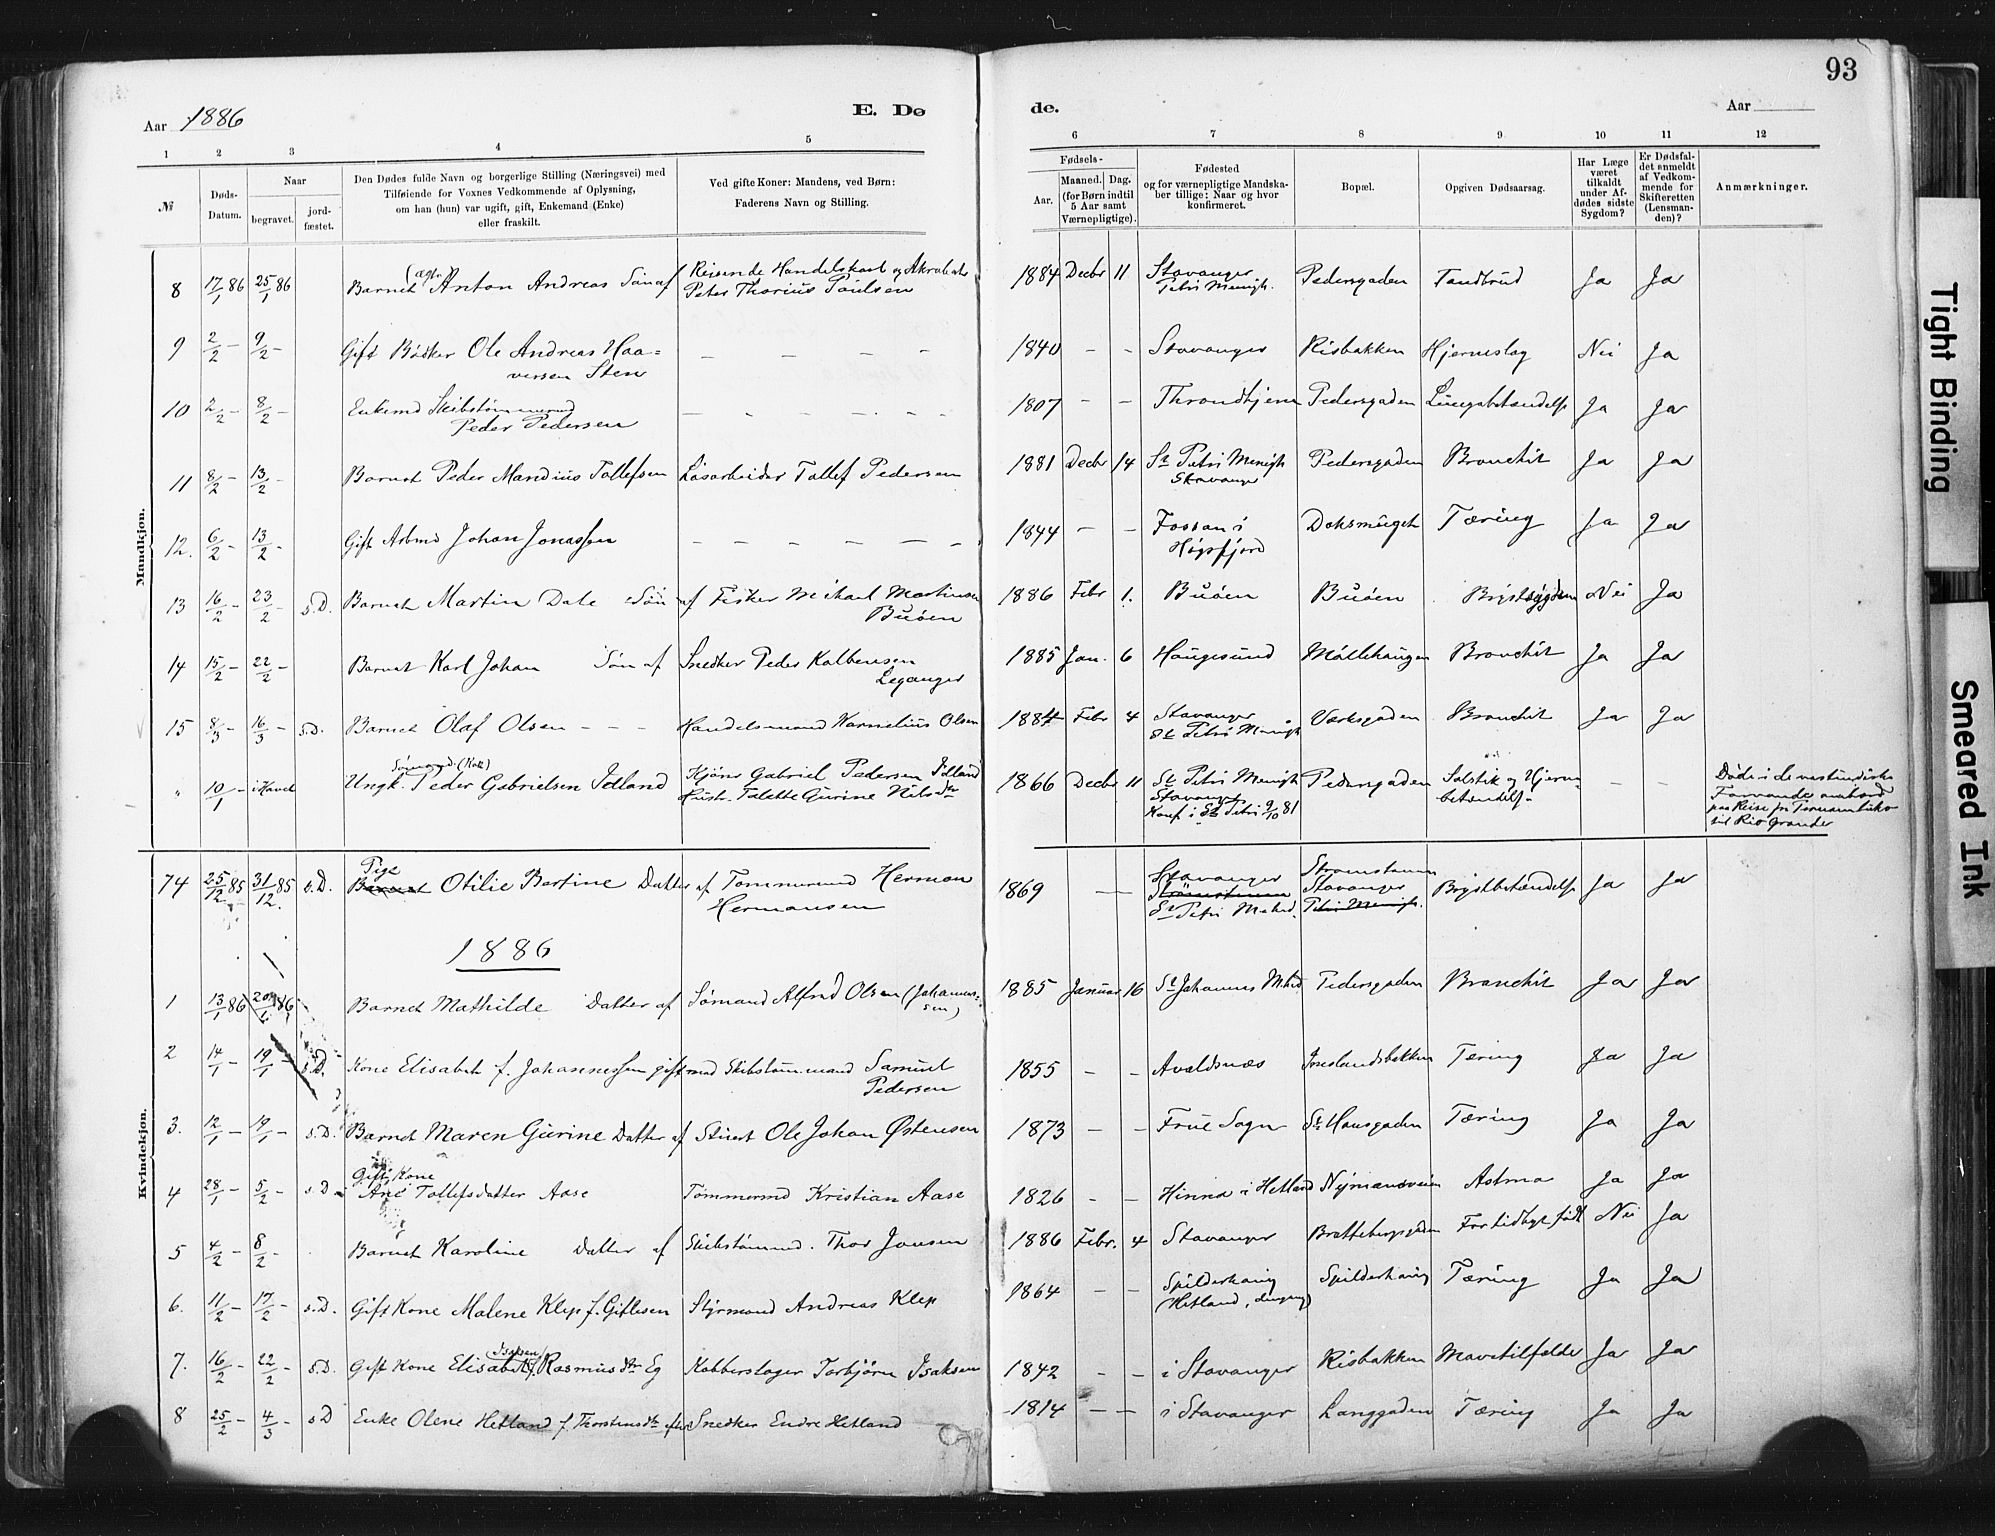 93
Aar 1886
E. Dø
de.
Aar
1 2 3 4 5
6 7 8 9 10 11 12
№
Døds-Datum.
Naar
begravet.
jord-fæstet.
Den Dødes fulde Navn og borgerlige Stilling (Næringsvei) med
Tilføiende for Voxnes Vedkommende af Oplysning,
om han (hun) var ugift, gift, Enkemand (Enke)
eller fraskilt.
Ved gifte Koner: Mandens, ved Børn:
Faderens Navn og Stilling.
Fødsels-
Aar.
Maaned. Dag.
(for Børn indtil
5 Aar samt
Værnepligtige).
Fødested
og for værnepligtige Mandska-
ber tillige: Naar og hvor
konfirmeret.
Bopæl.
Opgiven Dødsaarsag.
Har Læge
været
tilkaldt
under Af-
dødes sidste
Sygdom?
Er Dødsfal-
det anmeldt
af Vedkom-
mende for
Skifteretten
(Lensman-
den)?
Anmærkninger.
Mandkjøn.
8 17/1 86 25/1 86 Barnet (ægte) Anton Andreas Søn af Reisende Handelskarl og Akrobat Peter Thorius Paulsen 1884 Decbr 11 Stavanger Petri Menigh. Pedersgaden Tandbrud Ja Ja
9 2/2 – 9/2 – Gift Bødker Ole Andreas Haa=
versen Sten – – – – 1840 – – Stavanger Risbakken Hjerneslag Nei Ja
10 2/2 – 8/2 – Enkemd Skibstømmermd
Peder Pedersen – – – – – 1807 – – Throndhjem Pedersgaden Lungebetændelse Ja Ja
11 8/2 – 13/2 – Barnet Peder Mandius Tollefsen Løsarbeider Tollef Pedersen 1881 Decbr 14 St Petri Menigh Stavanger Pedersgaden Bronchit Ja Ja
12. 6/2 – 13/2 – Gift Arbmd Johan Jonassen – – – – – – 1844 – – Fossan i Høgsfjord Doksmuget Tæring Ja Ja
13 16/2 – 23/2 – s.D. Barnet Martin Dale Søn af Fisker Mikael Martinsen Buøen 1886 Febr 1. Buøen Buøen Brystsygdom Nei Ja
14 15/2 – 22/2 – Barnet Karl Johan Søn af Snedker Peder Kolbensen Leganger 1885 Jan. 6 Haugesund Møllehaugen Bronchit Ja Ja
15 8/3 – 16/3 – s.D. Barnet Olaf Olsen – – – Handelsmand Kornelius Olsen 1884 Febr 4 Stavanger St Petri Menigh Værksgaden Bronchit Ja Ja
" 10/1 – i Havet Ungk. Sømand (Kok) Peder Gabrielsen Idland Kjøns Gabriel Pedersen Idland Hustr. Talette Gurine Nilsdtr 1866 Decbr 11 St Petri Menigh Stavanger Konf i St Petri 9/10 81 Pedersgaden Solstik og Hjerne-
betændelse – – Døde i de vestindiske Farvande ombord paa Reise fra Pernambuko til Rio Grande
Kvindekjøn.
74 25/12 85 31/12 85 s.D. Pige Barnet Otilie Bertine Datter af Tømmermd Herman Hermansen 1869 – – Stavanger Strømstenen St Petri Mehed. Strømstenen Stavanger Petri Menigh. Brystbetændelse Ja Ja
1886
1 13/1 86 20/1 86 Barnet Mathilde Datter af Sømand Alfred Olsen (Johannes=
sen) 1885 Januar 16 St Johannes Mhed Pedersgaden Bronchit Ja Ja
2 14/1 – 19/1 – s.D. Kone Elisabet f. Johannessen gift med Skibstømmand Samuel Pedersen 1855 – – Avaldsnæs Joneslandsbakken Tæring Ja Ja
3. 12/1 – 19/1 – s.D. Barnet Maren Gurine Datter af Stuert Ole Johan Østensen 1873 – – Frue Sogn St Hansgaden Tæring Ja Ja
4 28/1 – 5/2 – s.D. Gift Kone
Ane Tollefsdatter Aase Tømmermd Kristian Aase 1826 – – Hinna i Hetland Nymansveien Astma Ja Ja
5 4/2 – 8/2 – Barnet Karoline Datter af Skibstømmd. Thor Jonsen 1886 Febr. 4 Stavanger Brattebergsgaden For tidligt født Nei Ja
6. 11/2 – 17/2 – s.D. Gift Kone Malene Klep f. Gitlesen Styrmand Andreas Klep 1864 – – Spilderhaug (Hetland, dengang) Spilderhaug Tæring Ja Ja
7. 16/2 – 22/2 – s.D. Gift Kone Elisabet Isaksen f. Rasmusdtr Eg Kobberslager Torbjørn Isaksen 1842 – – i Stavanger Risbakken Mavetilfælde Ja Ja
8 25/2 – 4/3 – s.D Enke Olene Hetland f. Thorstensdtr efter Snedker Endre Hetland 1814 – – i Stavanger Langgaden Tæring Ja Ja
Tight Binding
Smeared Ink